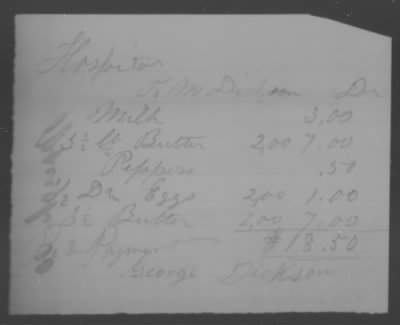 Hospital
To M Dickson Dr
Milk 3,00
3½ lb Butter 2,00 7.00
Peppers .50
½ Dn Eggs 2,00 1.00
3½ Butter 2,00 7,00
$18.50
Payment
George Dickson